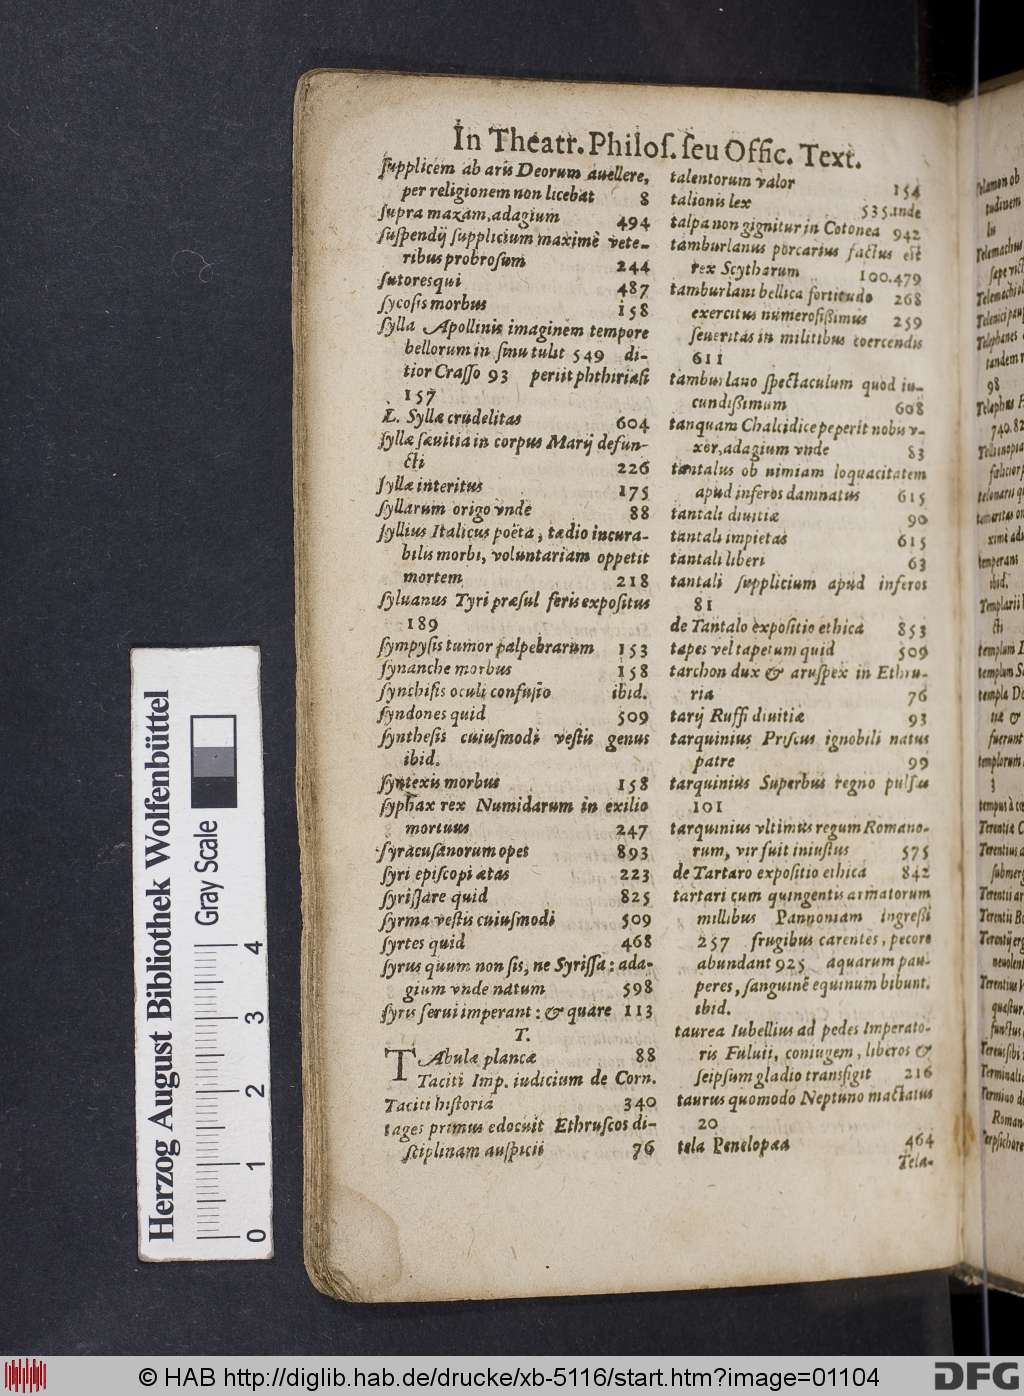 In Theatr. Philoſ. ſeu Offic. Text.
ſupplicem ab aris Deorum auellere,
per religionem non licebat 8
ſupra mazam, adagium 494
ſuſpendij ſupplicium maximè vete-
ribus probroſum 244
ſutores qui 487
ſycoſis morbus 158
ſylla Apollinis imaginem tempore
bellorum in ſinu tulit 549 di-
tior Craſſo 93 periit phthiriaſi
157
L. Syllæ crudelitas 604
ſyllæ ſæuitia in corpus Marij defun-
cti 226
ſyllæ interitus 175
ſyllarum origo vnde 88
ſyllius Italicus poëta, tædio incura-
bilis morbi, voluntariam oppetit
mortem 218
ſyluanus Tyri præſul feris expoſitus
189
ſympyſis tumor palpebrarum 153
ſynanche morbus 158
ſynchiſis oculi confuſio ibid.
ſyndones quid 509
ſyntheſis cuiuſmodi veſtis genus
ibid.
ſyntexis morbus 158
ſyphax rex Numidarum in exilio
mortuus 247
ſyracuſanorum opes 893
ſyri epiſcopi ætas 223
ſyriſſare quid 825
ſyrma veſtis cuiuſmodi 509
ſyrtes quid 468
ſyrus quum non ſis, ne Syriſſa: ada-
gium vnde natum 598
ſyris ſerui imperant: & quare 113
T.
TAbulæ plancæ 88
Taciti Imp. iudicium de Corn.
Taciti hiſtoria 340
tages primus edocuit Ethruſcos di-
ſciplinam auſpicii 76
talentorum valor 154
talionis lex 535. inde
talpa non gignitur in Cotonea 942
tamburlanus porcarius factus eſt
rex Scytharum 100.479
tamburlani bellica fortitudo 268
exercitus numeroſißimus 259
ſeueritas in militibus coercendis
611
tamburlano ſpectaculum quod iu-
cundißimum 608
tanquam Chalcidice peperit nobis v-
xor, adagium vnde 83
tantalus ob nimiam loquacitatem
apud inferos damnatus 615
tantali diuitiæ 90
tantali impietas 615
tantali liberi 63
tantali ſupplicium apud inferos
81
de Tantalo expoſitio ethica 853
tapes vel tapetum quid 509
tarchon dux & aruſpex in Ethru-
ria 76
tarij Ruffi diuitiæ 93
tarquinius Priſcus ignobili natus
patre 99
tarquinius Superbus regno pulſus
101
tarquinius vltimus regum Romano-
rum, vir fuit iniuſtus 575
de Tartaro expoſitio ethica 842
tartari cum quingentis armatorum
millibus Pannoniam ingreſſi
257 frugibus carentes, pecore
abundant 925 aquarum pau-
peres, ſanguinē equinum bibunt.
ibid.
taurea Iubellius ad pedes Imperato-
ris Fuluii, coniugem, liberos &
ſeipſum gladio transfigit 216
taurus quomodo Neptuno mactatus
20
tela Penelopæa 464
Tela-
Telamon ob
tudinem
Telemachus
Telephanes
tandem
98
740.82
temperans
ibid.
Templarii
cti
templum
templum
templa
fuerunt
templorum
3
Terentia
Terentius
Terentii
Terentii
Terentius
Terminalia
Termino
Roman
Terpſichore
Herzog August Bibliothek Wolfenbüttel
Gray Scale
0 1 2 3 4
© HAB http://diglib.hab.de/drucke/xb-5116/start.htm?image=01104
DFG